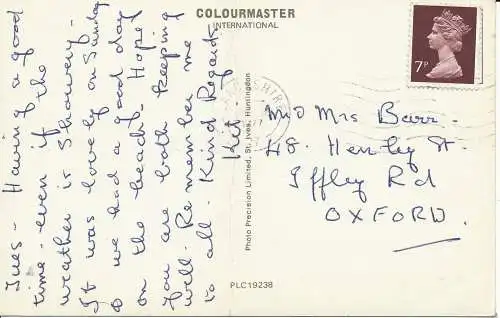 COLOURMASTER
INTERNATIONAL
Tues - Having a good
time - even if the
weather is Showery -
It was lovely on Sunday
& we had a good day
on the beach - Hope
You are both keeping
well - Remember me
to all - Kind Regards
Kit
7P
Mr & Mrs Barr -
48. Henley St.
Iffley Rd
OXFORD.
Photo Precision Limited, St. Ives, Huntingdon
PLC19238